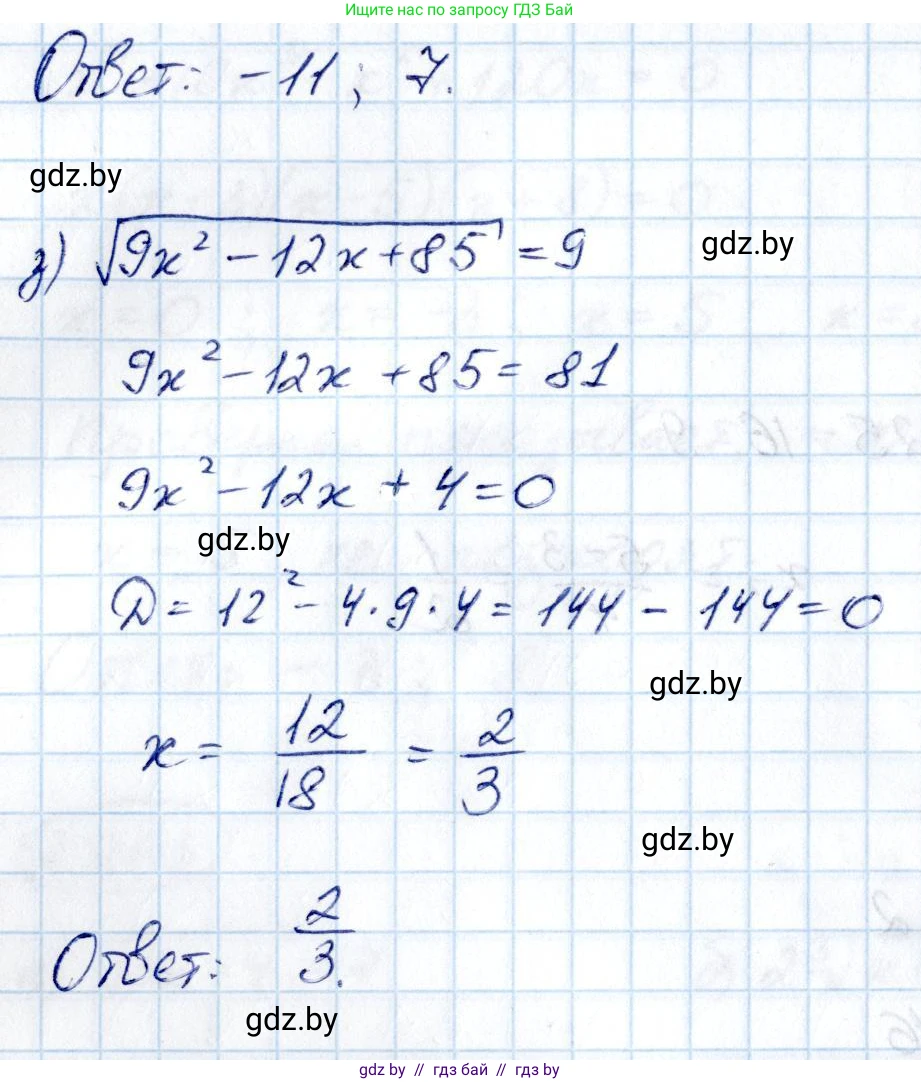 Ищите нас по запросу ГДЗ Бай
Ответ: -11; 7.
gdz.by
з) √(9x² - 12x + 85) = 9
gdz.by
9x² - 12x + 85 = 81
9x² - 12x + 4 = 0
gdz.by
D = 12² - 4·9·4 = 144 - 144 = 0
gdz.by
x = 12/18 = 2/3
gdz.by
Ответ: 2/3.
gdz.by
gdz.by // гдз бай // gdz.by